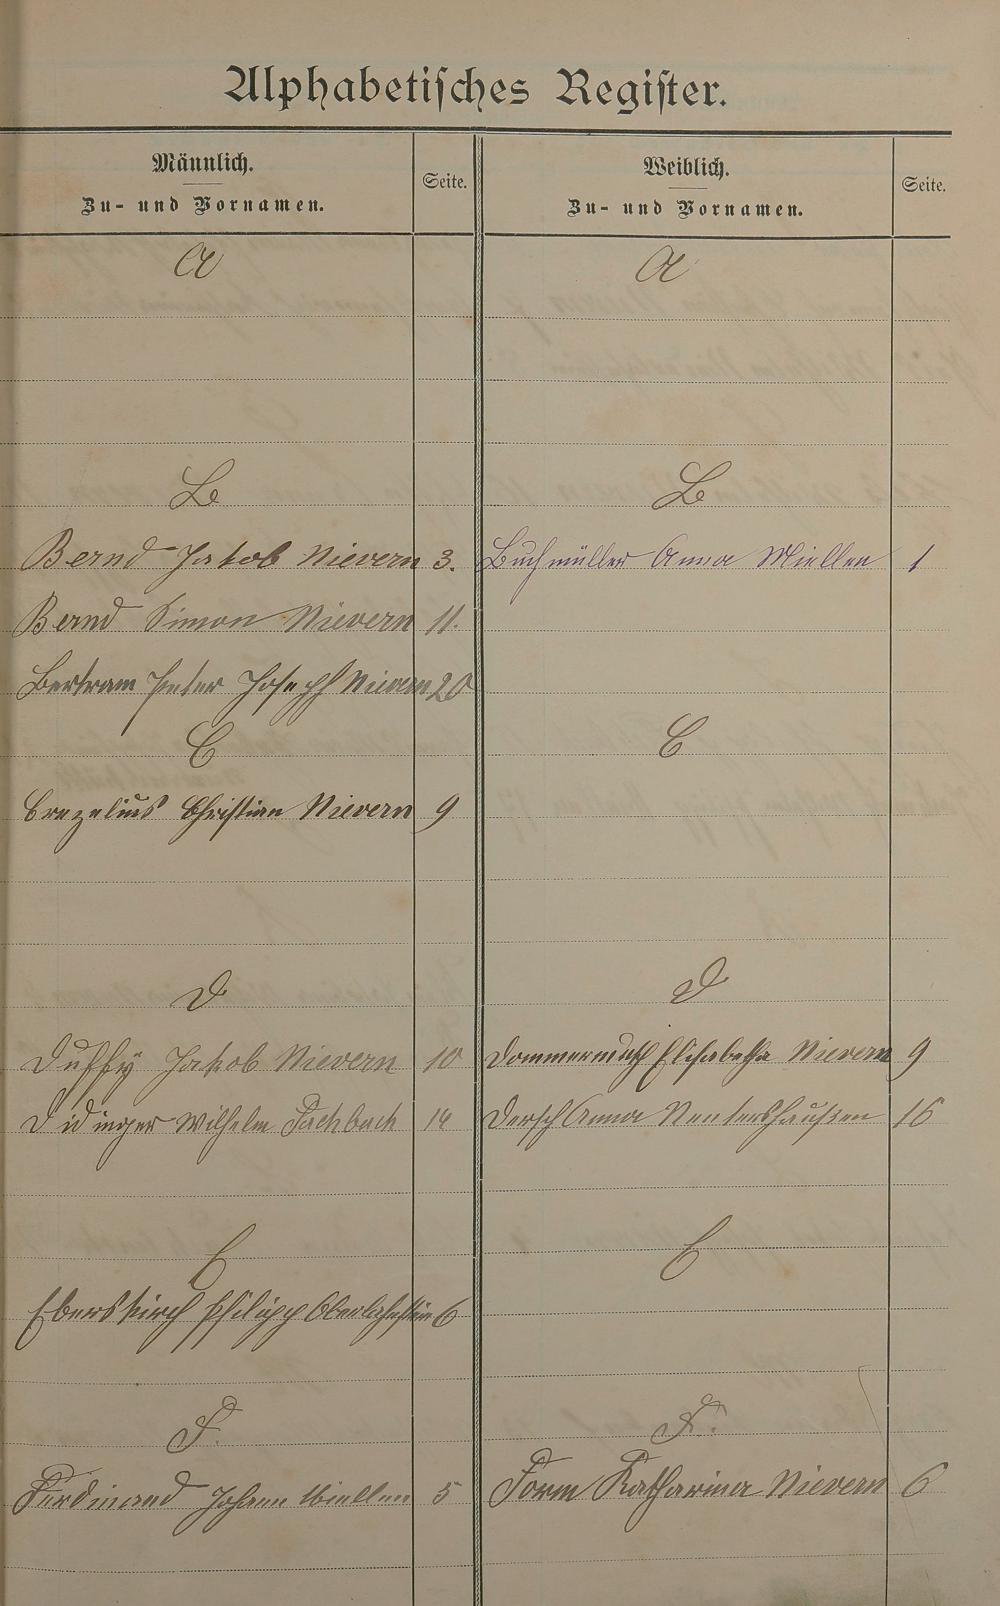 Alphabetisches Register.
Männlich.
Zu- und Vornamen.
Seite.
Weiblich.
Zu- und Vornamen.
Seite.
A
A
B
B
Bernd Jakob Nievern 3.
Buchmüller Anna Miellen 1
Bernd Simon Nievern 11.
Bertram Peter Joseph Nievern 20
C
C
Crezelius Christian Nievern 9
D
D
Duffy Jakob Nievern 10
Dommermuth Elisabetha Nievern 9
Didinger Wilhelm Fachbach 14
Dersch Anna Nentershausen 16
E
E
Eberskirch Philipp Oberlahnstein 6
F.
F.
Ferdinand Johann Miellen 5
Form Katharina Nievern 6